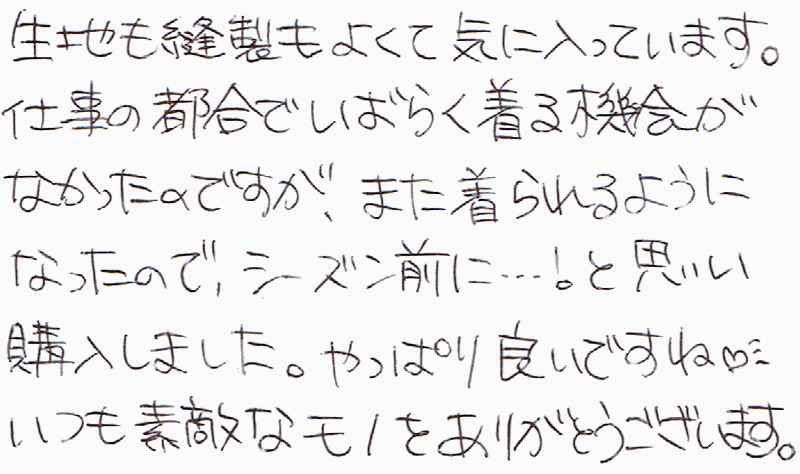 生地も縫製もよくて気に入っています。
仕事の都合でしばらく着る機会が
なかったのですが、また着られるように
なったので、シーズン前に…!と思い
購入しました。やっぱり良いですね♡
いつも素敵なモノをありがとうございます。